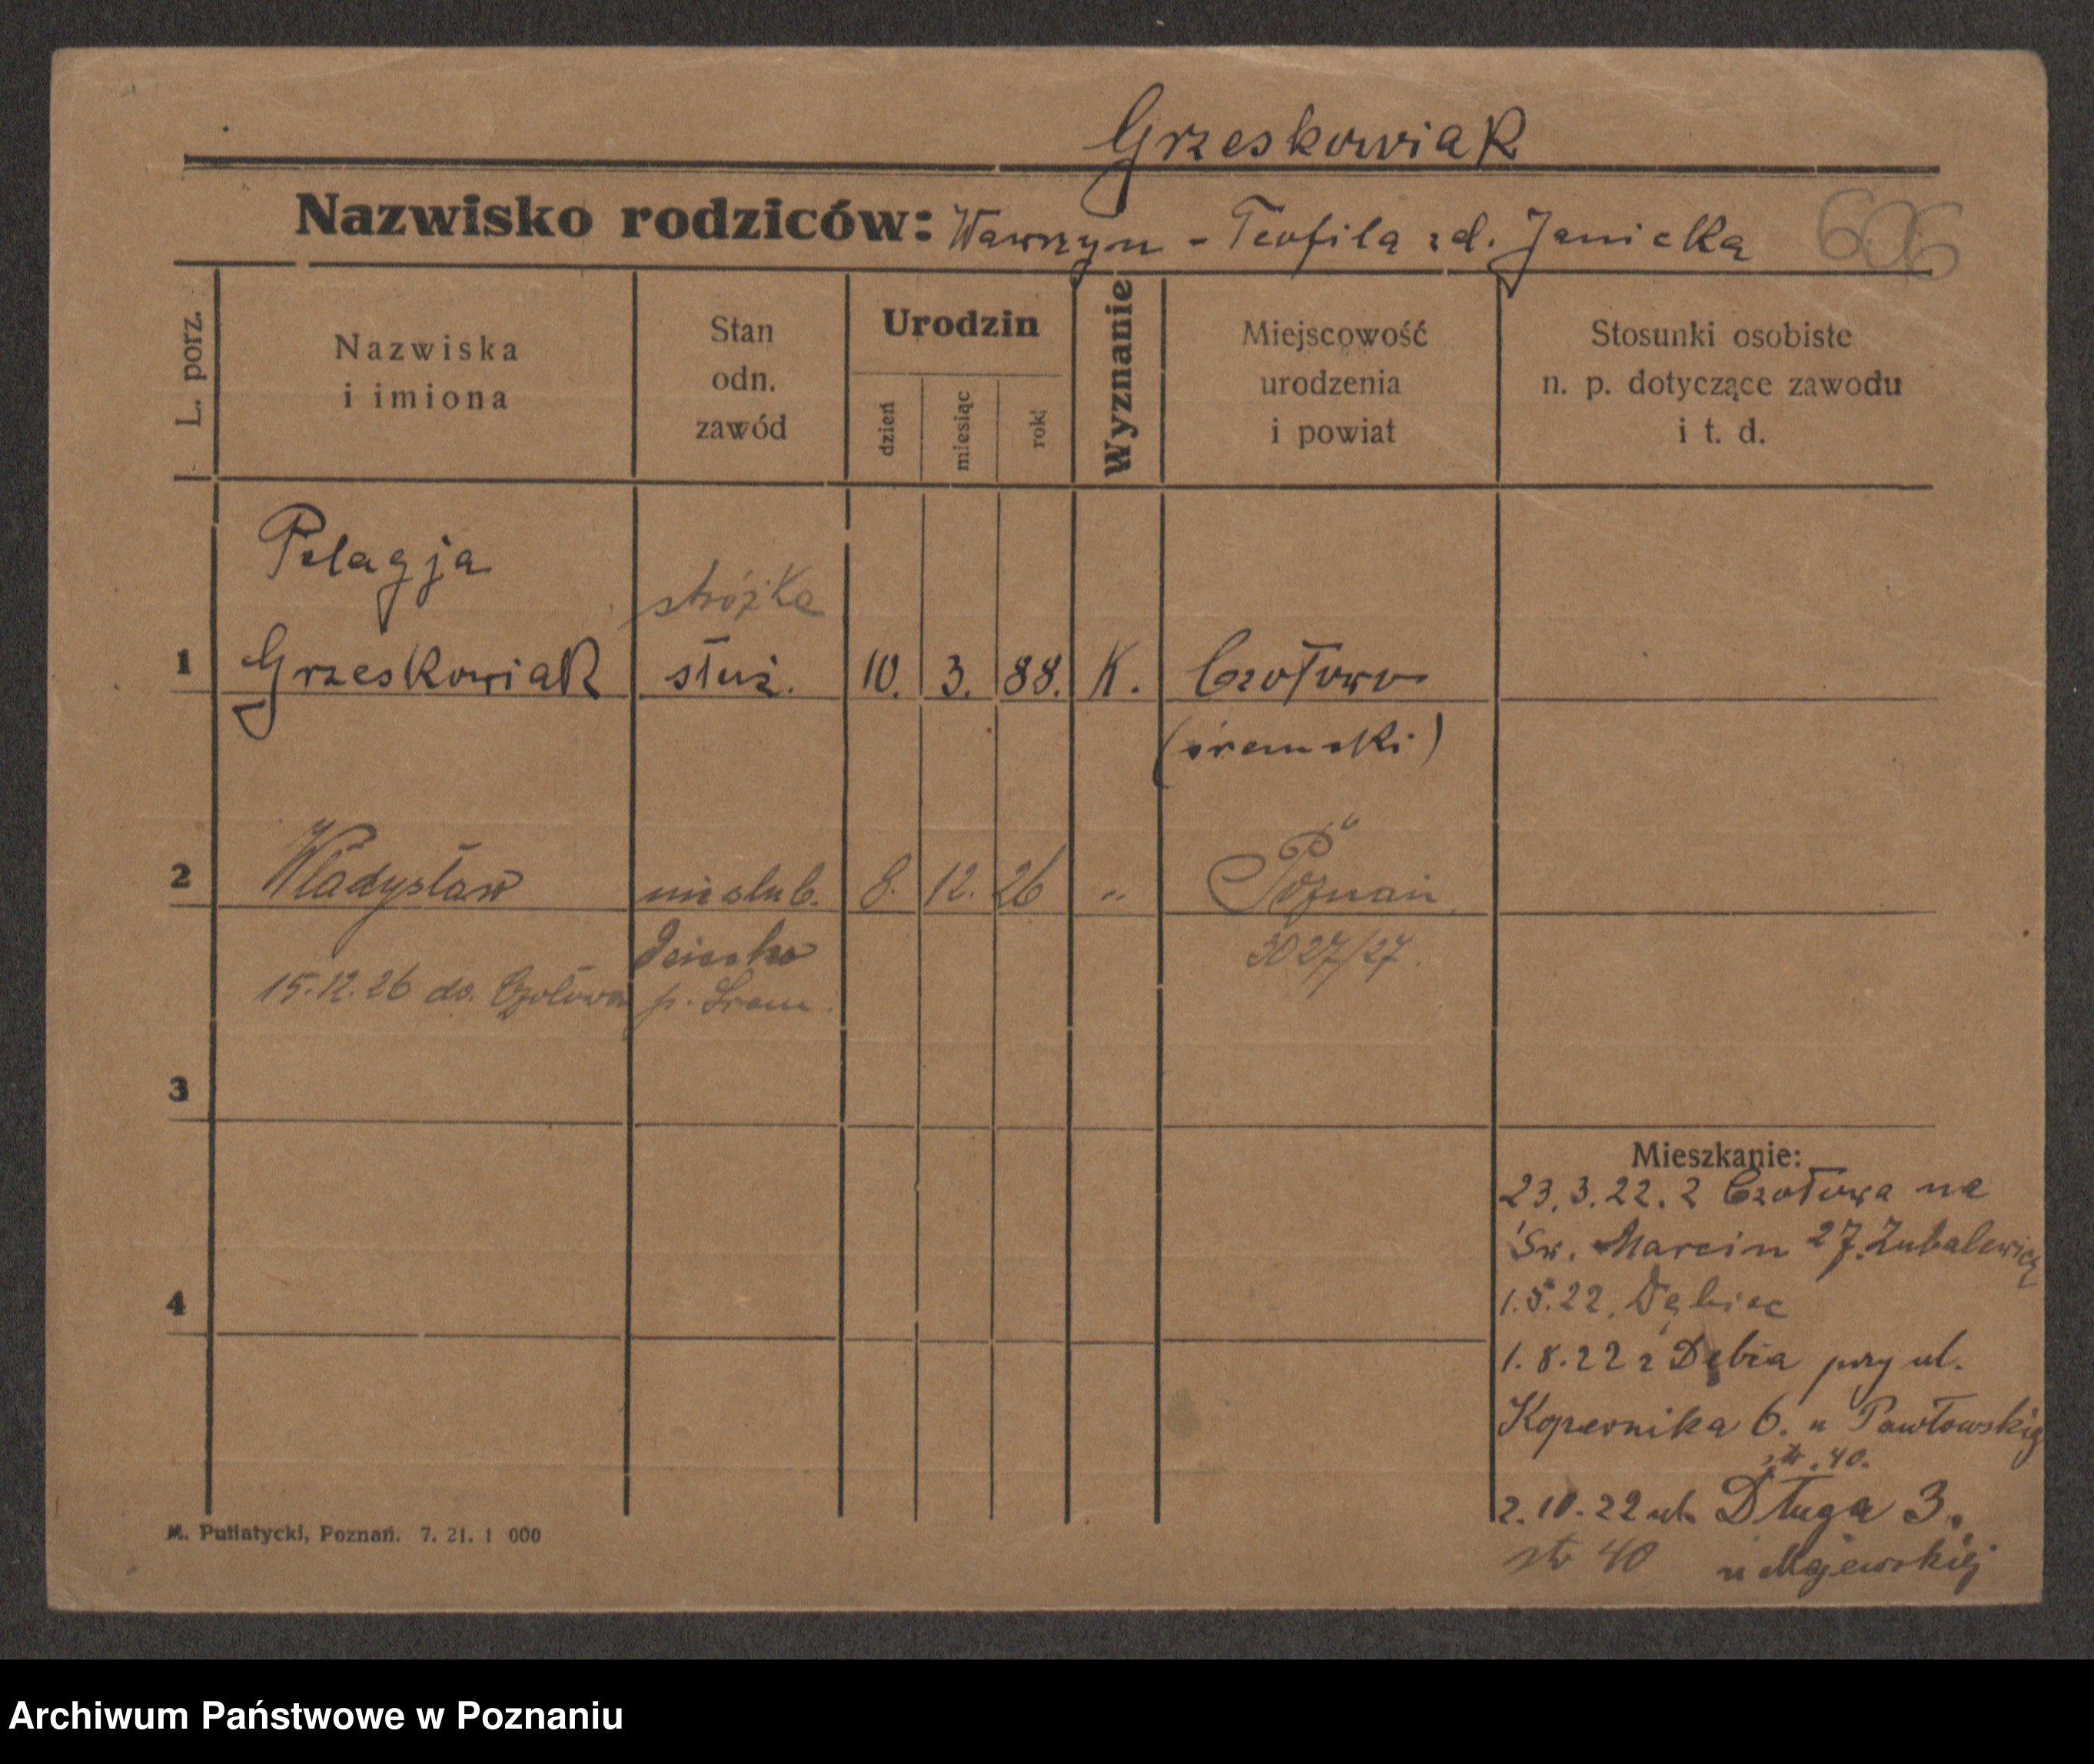 Grzeskowiak
Nazwisko rodziców: Wawrzyn - Teofila zd. Janicka 606
L. porz.
Nazwiska
i imiona
Stan
odn.
zawód
Urodzin
dzień
miesiąc
rok
Wyznanie
Miejscowość
urodzenia
i powiat
Stosunki osobiste
n. p. dotyczące zawodu
i t. d.
Pelagja
stróżka
1 Grzeskowiak służ. 10. 3. 88. K. Czołowo
(śremski)
2 Władysław nieślub. 8. 12. 26 " Poznań
dziecko 3027/27.
15.12.26 do Czołowa p. Śrem.
3
4
Mieszkanie:
23.3.22. z Czołowa na
Św. Marcin 27. Zubalewicz
1.5.22. Dębiec
1.8.22 z Dębca przy ul.
Kopernika 6. u Pawłowskiej
str. 40.
2.10.22 ul. Długa 3.
str 40 u Majewskiej
M. Putiatycki, Poznań. 7. 21. 1 000
Archiwum Państwowe w Poznaniu